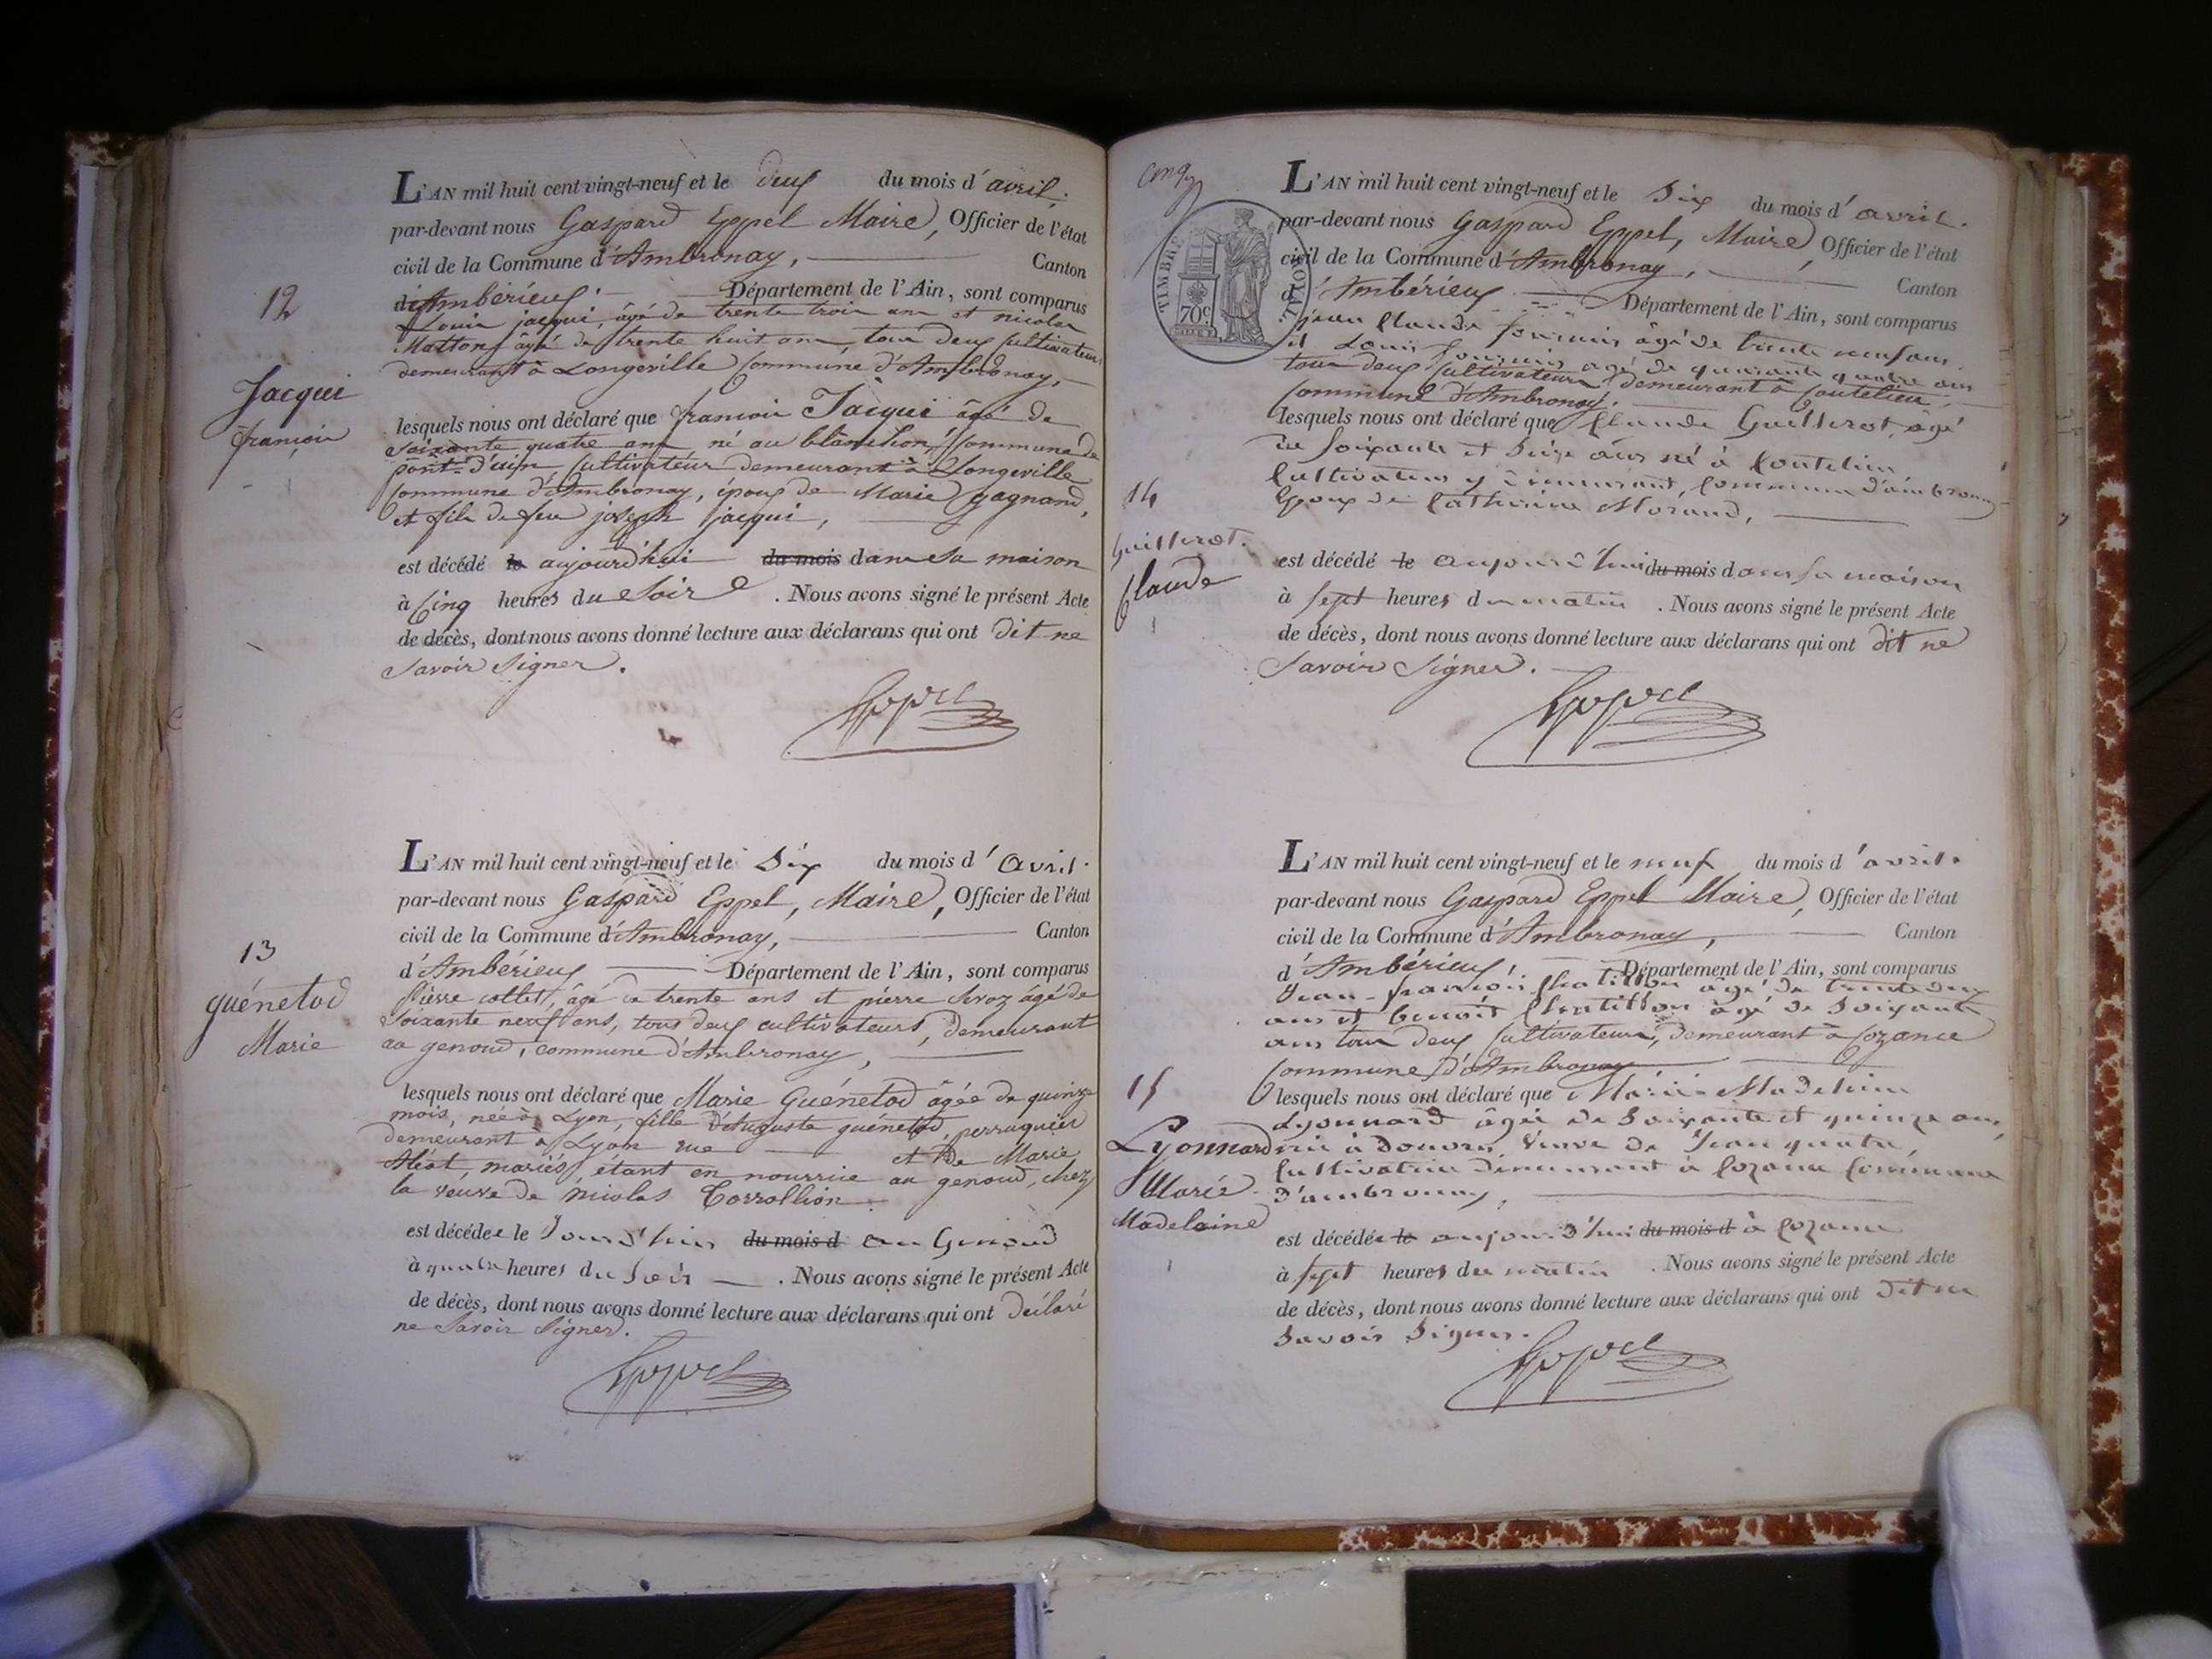 12
Jacqui
françois
L'AN mil huit cent vingt-neuf et le deux du mois d'avril.
par-devant nous Gaspard Eppel Maire, Officier de l'état
civil de la Commune d'Ambronay, Canton
d'Ambérieux. Département de l'Ain, sont comparus
Louis jacqui, âgé de trente trois ans et nicolas
Matton âgé de trente huit ans, tous deux cultivateurs
demeurant à Longeville Commune d'Ambronay,
lesquels nous ont déclaré que françois Jacqui âgé de
soixante quatre ans né au blanchon, Commune de
pont-d'ain, Cultivateur demeurant à Longeville
Commune d'Ambronay, époux de Marie gagnand,
et fils de feu joseph jacqui,
est décédé le aujourd'hui du mois dans sa maison
à Cinq heures du Soir. Nous avons signé le présent Acte
de décès, dont nous avons donné lecture aux déclarans qui ont dit ne
Savoir Signer.
Eppel
13
guénetod
Marie
L'AN mil huit cent vingt-neuf et le Six du mois d'Avril.
par-devant nous Gaspard Eppel, Maire, Officier de l'état
civil de la Commune d'Ambronay, Canton
d'Ambérieux Département de l'Ain, sont comparus
Pierre collet, âgé de trente ans et pierre Sevoz âgé de
Soixante neuf ans, tous deux cultivateurs, demeurant
au genoud, commune d'Ambronay,
lesquels nous ont déclaré que Marie Guénetod âgée de quinze
mois, née à Lyon, fille d'Auguste guénetod, perruquier
demeurant à Lyon rue et de Marie
mariés, étant en nourrice au genoud, chez
la veuve de Nicolas
est décédée le Jourd'hui du mois d au Genoud
à quatre heures du Soir. Nous avons signé le présent Acte
de décès, dont nous avons donné lecture aux déclarans qui ont déclaré
ne Savoir Signer.
Eppel
cinq
TIMBRE ROYAL
70c
14
Guillerot.
Claude
L'AN mil huit cent vingt-neuf et le Six du mois d'avril.
par-devant nous Gaspard Eppel, Maire, Officier de l'état
civil de la Commune d'Ambronay, Canton
d'Ambérieux Département de l'Ain, sont comparus
jean Claude fournier âgé de trente neuf ans
et Louis fournier âgé de quarante quatre ans
tous deux Cultivateurs demeurant à Coutelieu,
Commune d'Ambronay.
lesquels nous ont déclaré que Claude Guillerot, âgé
de Soixante et Seize ans né à Coutelieu,
Cultivateur y demeurant, Commune d'ambronay
Epoux de Catherine Morand,
est décédé le aujourd'hui du mois dans sa maison
à Sept heures du matin. Nous avons signé le présent Acte
de décès, dont nous avons donné lecture aux déclarans qui ont dit ne
Savoir Signer.
Eppel
15
Lyonnard
Marie
Madelaine
L'AN mil huit cent vingt-neuf et le neuf du mois d'avril.
par-devant nous Gaspard Eppel Maire, Officier de l'état
civil de la Commune d'Ambronay, Canton
d'Ambérieux, Département de l'Ain, sont comparus
Jean-françois Chatillon âgé de trente deux
ans et Benoit Chatillon âgé de Soixante
ans tous deux Cultivateurs, demeurant à Cozance
Commune d'Ambronay
lesquels nous ont déclaré que Marie Madelaine
Lyonnard âgée de Soixante et quinze ans,
née à Douvres Veuve de Jean
Cultivatrice demeurant à Cozance Commune
d'ambronay,
est décédée le aujourd'hui du mois d à Cozance
à Sept heures du matin. Nous avons signé le présent Acte
de décès, dont nous avons donné lecture aux déclarans qui ont dit ne
Savoir Signer.
Eppel